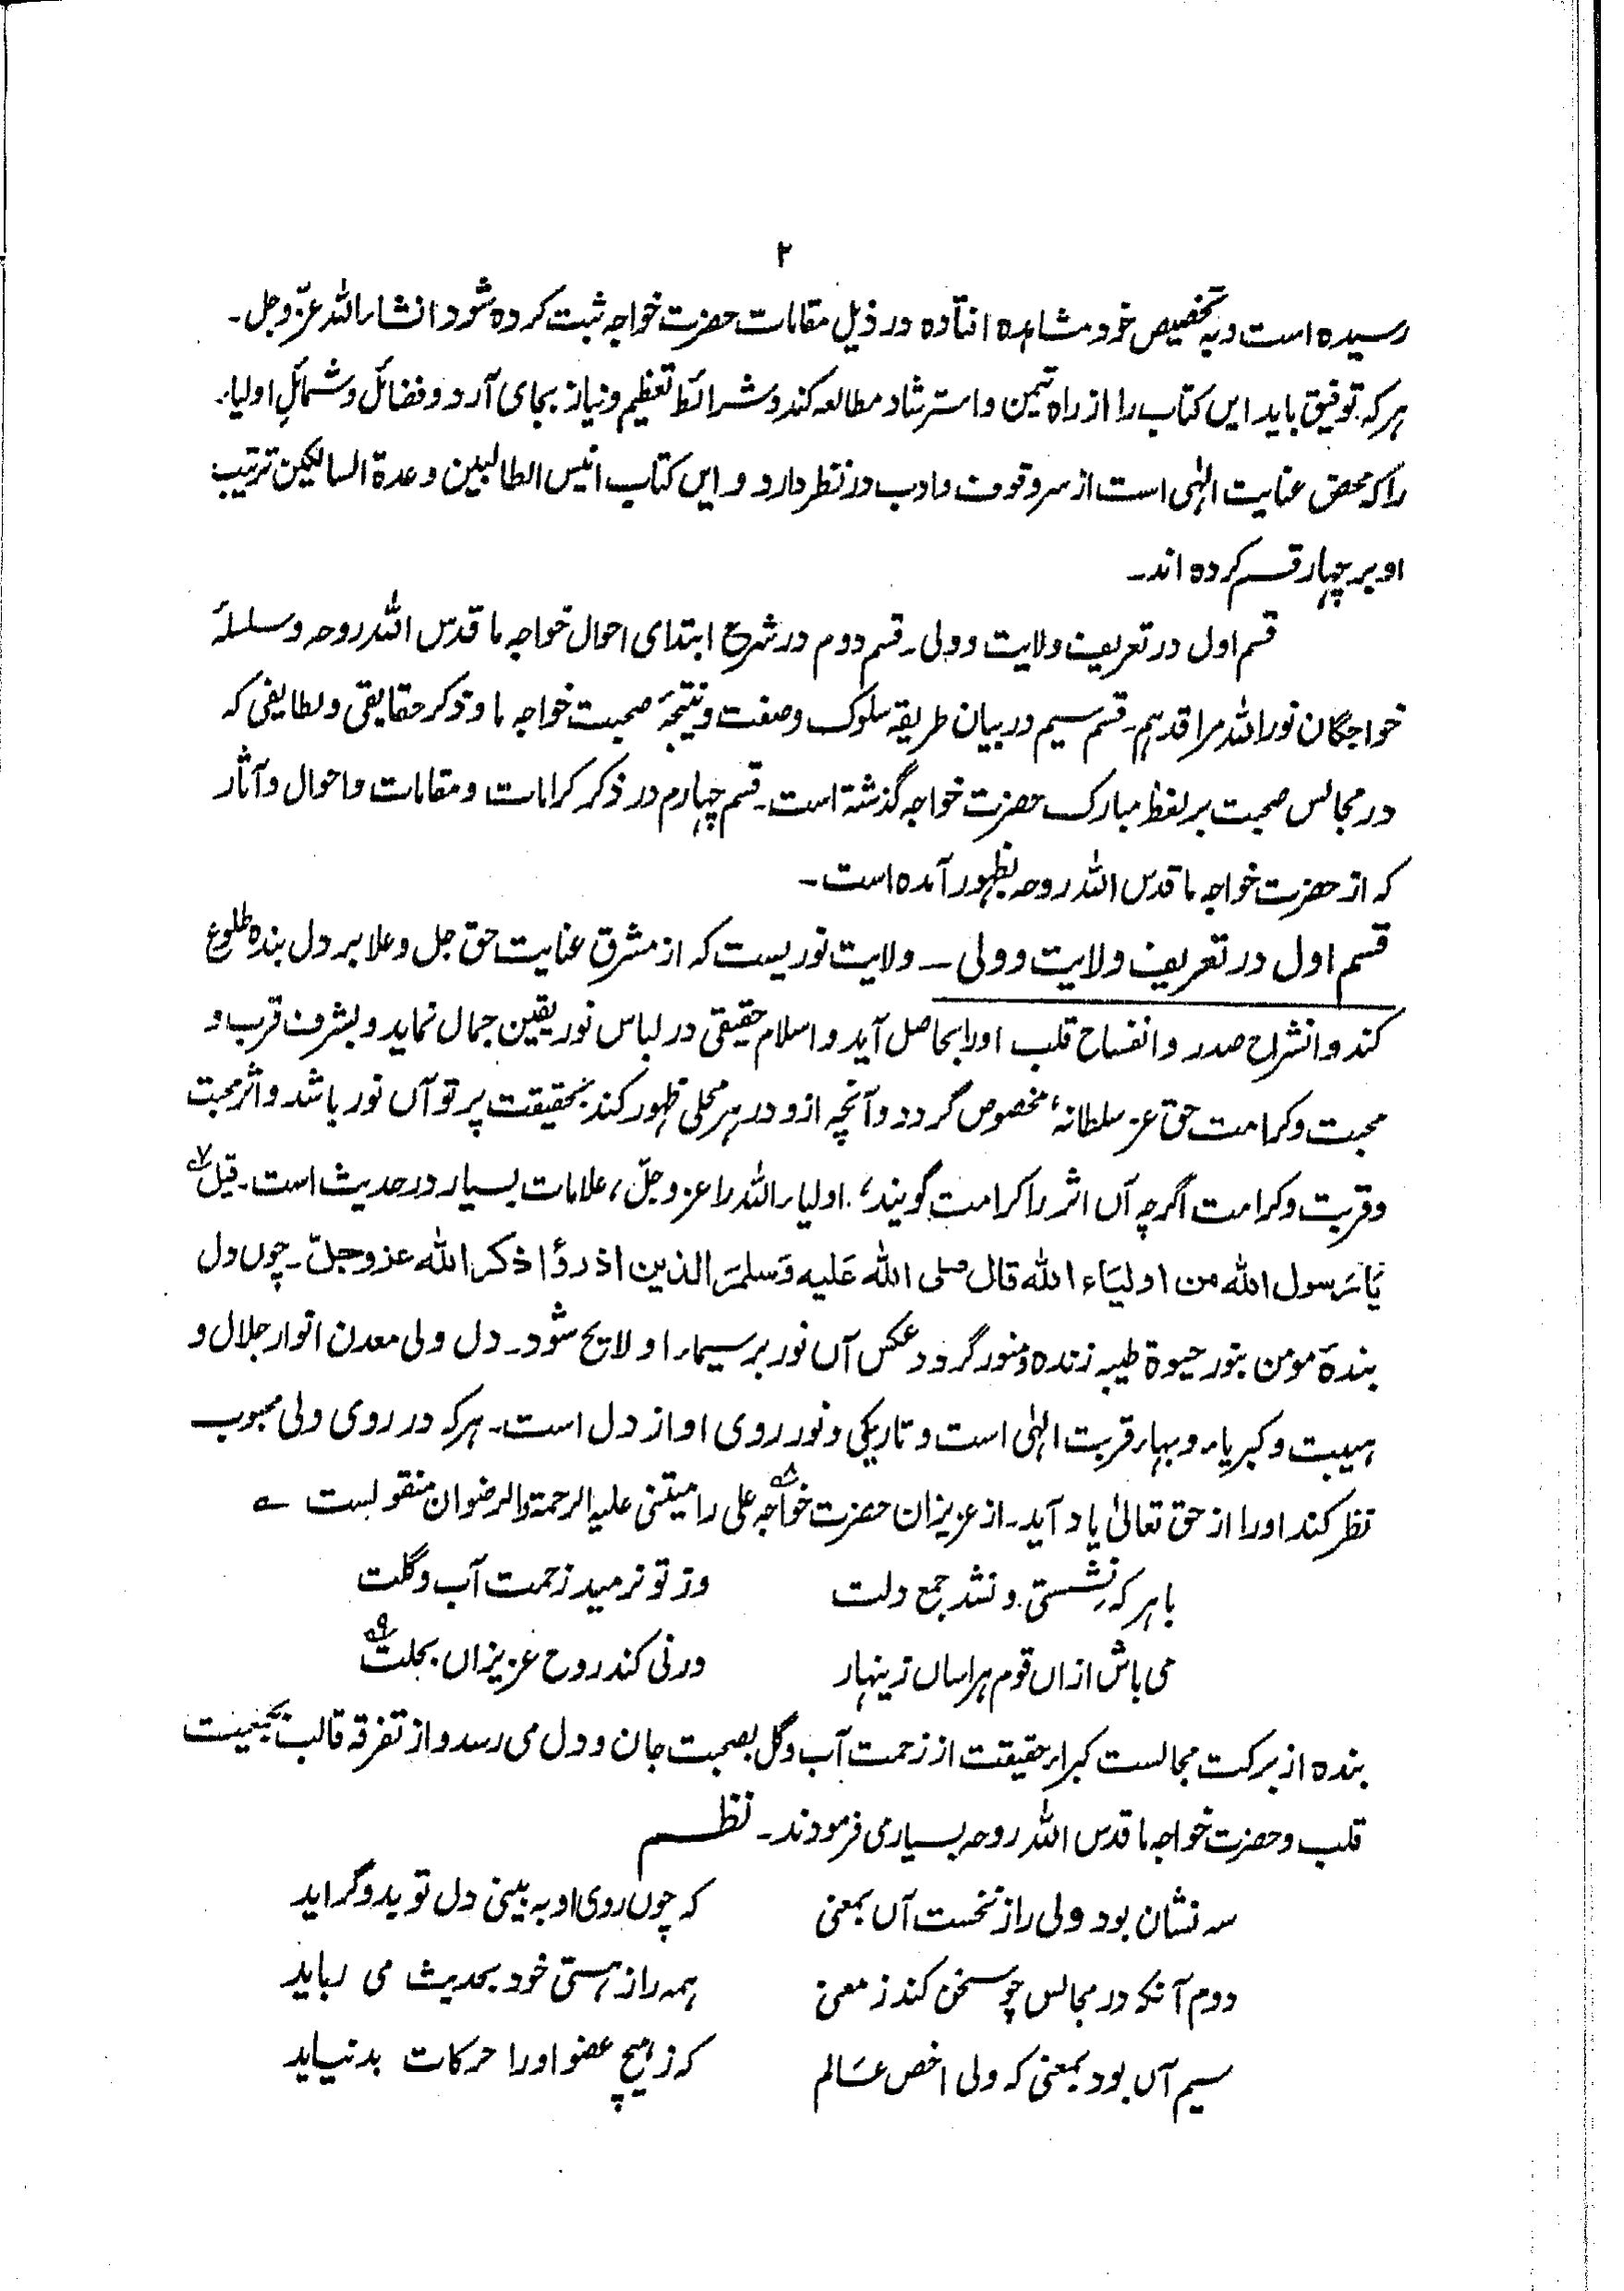 ۲
رسیده است و به تخصیص خود مشاهده افتاده در ذیل مقامات حضرت خواجه ثبت کرده شود انشاءالله عزّوجل۔
ہر که توفیق یابد این کتاب را از راہ تیمن و استرشاد مطالعه کند و شرائط تعظیم و نیاز بجای آرد و فضائل و شمائل اولیاء
را که محض عنایت الٰہی است از سر وقوف و ادب در نظر دارد و این کتاب انیس الطالبین و عدة السالکین ترتیب
او بر چہار قسم کرده اند۔
قسم اول در تعریف ولایت و ولی۔ قسم دوم در شرح ابتدای احوال خواجہ ما قدس اللہ روحہ و سلسلۂ
خواجگان نور اللہ مراقدہم۔ قسم سیم در بیان طریقہ سلوک و صفت و نتیجۂ صحبت خواجہ ما و ذکر حقایقی و لطایفی کہ
در مجالس صحبت بر لفظ مبارک حضرت خواجہ گذشتہ است۔ قسم چہارم در ذکر کرامات و مقامات و احوال و آثار
کہ از حضرت خواجہ ما قدس اللہ روحہ بظہور آمده است۔
قسم اول در تعریف ولایت و ولی ـ ولایت نوریست کہ از مشرق عنایت حق جل و علا بر دل بنده طلوع
کند و انشراح صدر و انفساح قلب او را بحاصل آید و اسلام حقیقی در لباس نور یقین جمال نماید و بشرف قرب و
محبت و کرامت حق عز سلطانہ، مخصوص گردد و آنچہ ازو در ہر محلی ظہور کند بحقیقت پرتو آں نور باشد و اثر محبت
و قربت و کرامت اگرچہ آں اثر را کرامت گویند، اولیاء اللہ را عز و جلّ، علامات بسیار در حدیث است۔ قیل ؂۷
یَا رَسول اللہ من اولیَاء اللہ قال صلی اللہ عَلیه وَسلمَ الذین اذ رؤا ذکر اللہ عزوجلّ۔ چوں دل
بندۂ مومن بنور حیوة طیبہ زنده و منور گردد عکس آں نور بر سیماء او لایح شود۔ دل ولی معدن انوار جلال و
ہیبت و کبریاء و بہاء قربت الٰہی است و تاریکی و نور روی او از دل است۔ ہر کہ در روی ولی محبوب
نظر کند او را از حق تعالیٰ یاد آید۔ از عزیزان حضرت خواجہ ؂۸ علی رامیتنی علیہ الرحمة والرضوان منقولست ؎
با ہر کہ نِشستی و نشد جمع دلت    وز تو نرمید زحمت آب و گلت
می باش ازاں قوم ہراساں زینہار    ورنی کند روح عزیزاں بحلت ؂۹
بنده از برکت مجالست کبراء حقیقت از زحمت آب و گل بصحبت جان و دل می رسد و از تفرقہ قالب بجمعیت
قلب و حضرت خواجہ ما قدس اللہ روحہ بسیار می فرمودند۔ نظــم
سہ نشان بود ولی را ز نخست آں بمعنی    کہ چوں روی او بہ بینی دل تو بدو گراید
دوم آنکہ در مجالس چو سخن کند ز معنی    ہمہ را ز ہستی خود بحدیث می رباید
سیم آں بود بمعنی کہ ولی اخص عَالم    کہ ز ہیچ عضو او را حرکات بد نیاید